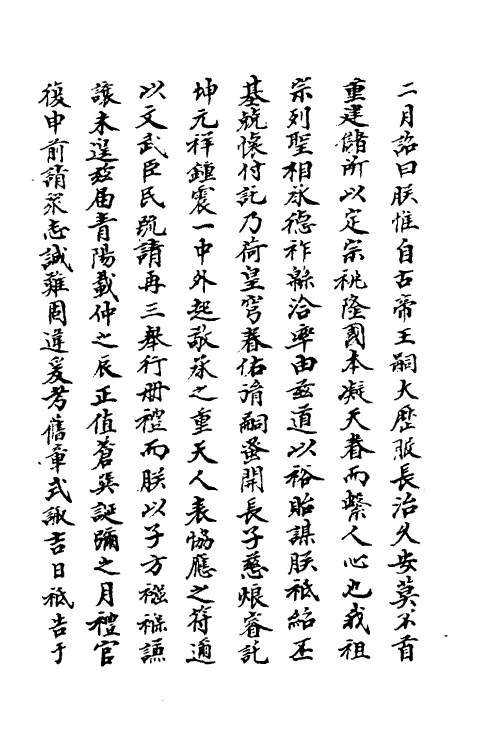 二月詔曰朕惟自古帝王嗣大歷服長治久安莫不首
重建儲所以定宗祧隆國本凝天眷而繫人心也我祖
宗列聖相承德祚緜洽率由茲道以裕貽謀朕祇紹丕
基兢懷付託乃荷皇穹眷佑滑嗣蚤開長子慈烺睿託
坤元祥鍾震一中外起敬承之重天人表恊應之符邇
以文武臣民統請再三舉行册禮而朕以子方襁褓謙
讓未遑茲届青陽載仲之辰正值蒼筤誕彌之月禮官
復申前請衆志誠難固違爰考舊章式諏吉日祗告于